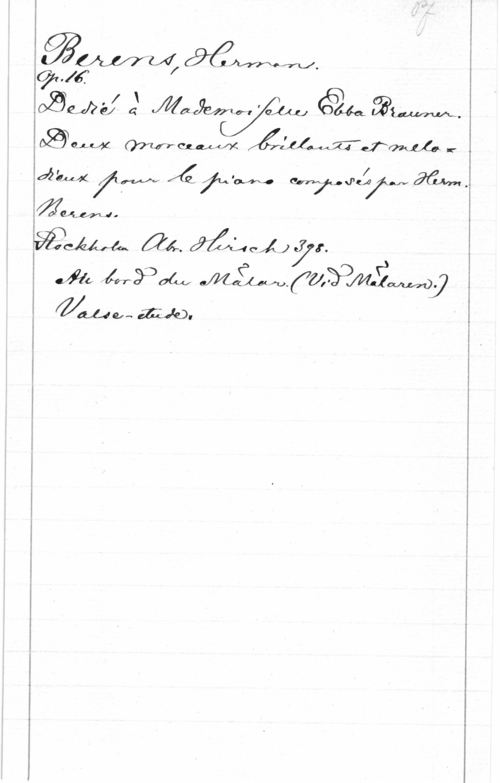 Pf
Berens, Herman.
Op. 16.
Dedié à Mademoiselle Ebba Brauner.
Deux morceaux brillants et melo=
dieux pour le piano composés par Herm.
Berens.
Stockholm Abr. Hirsch, 398.
Au bord du Mälar. (Vid Mälaren.)
Valse-etude.